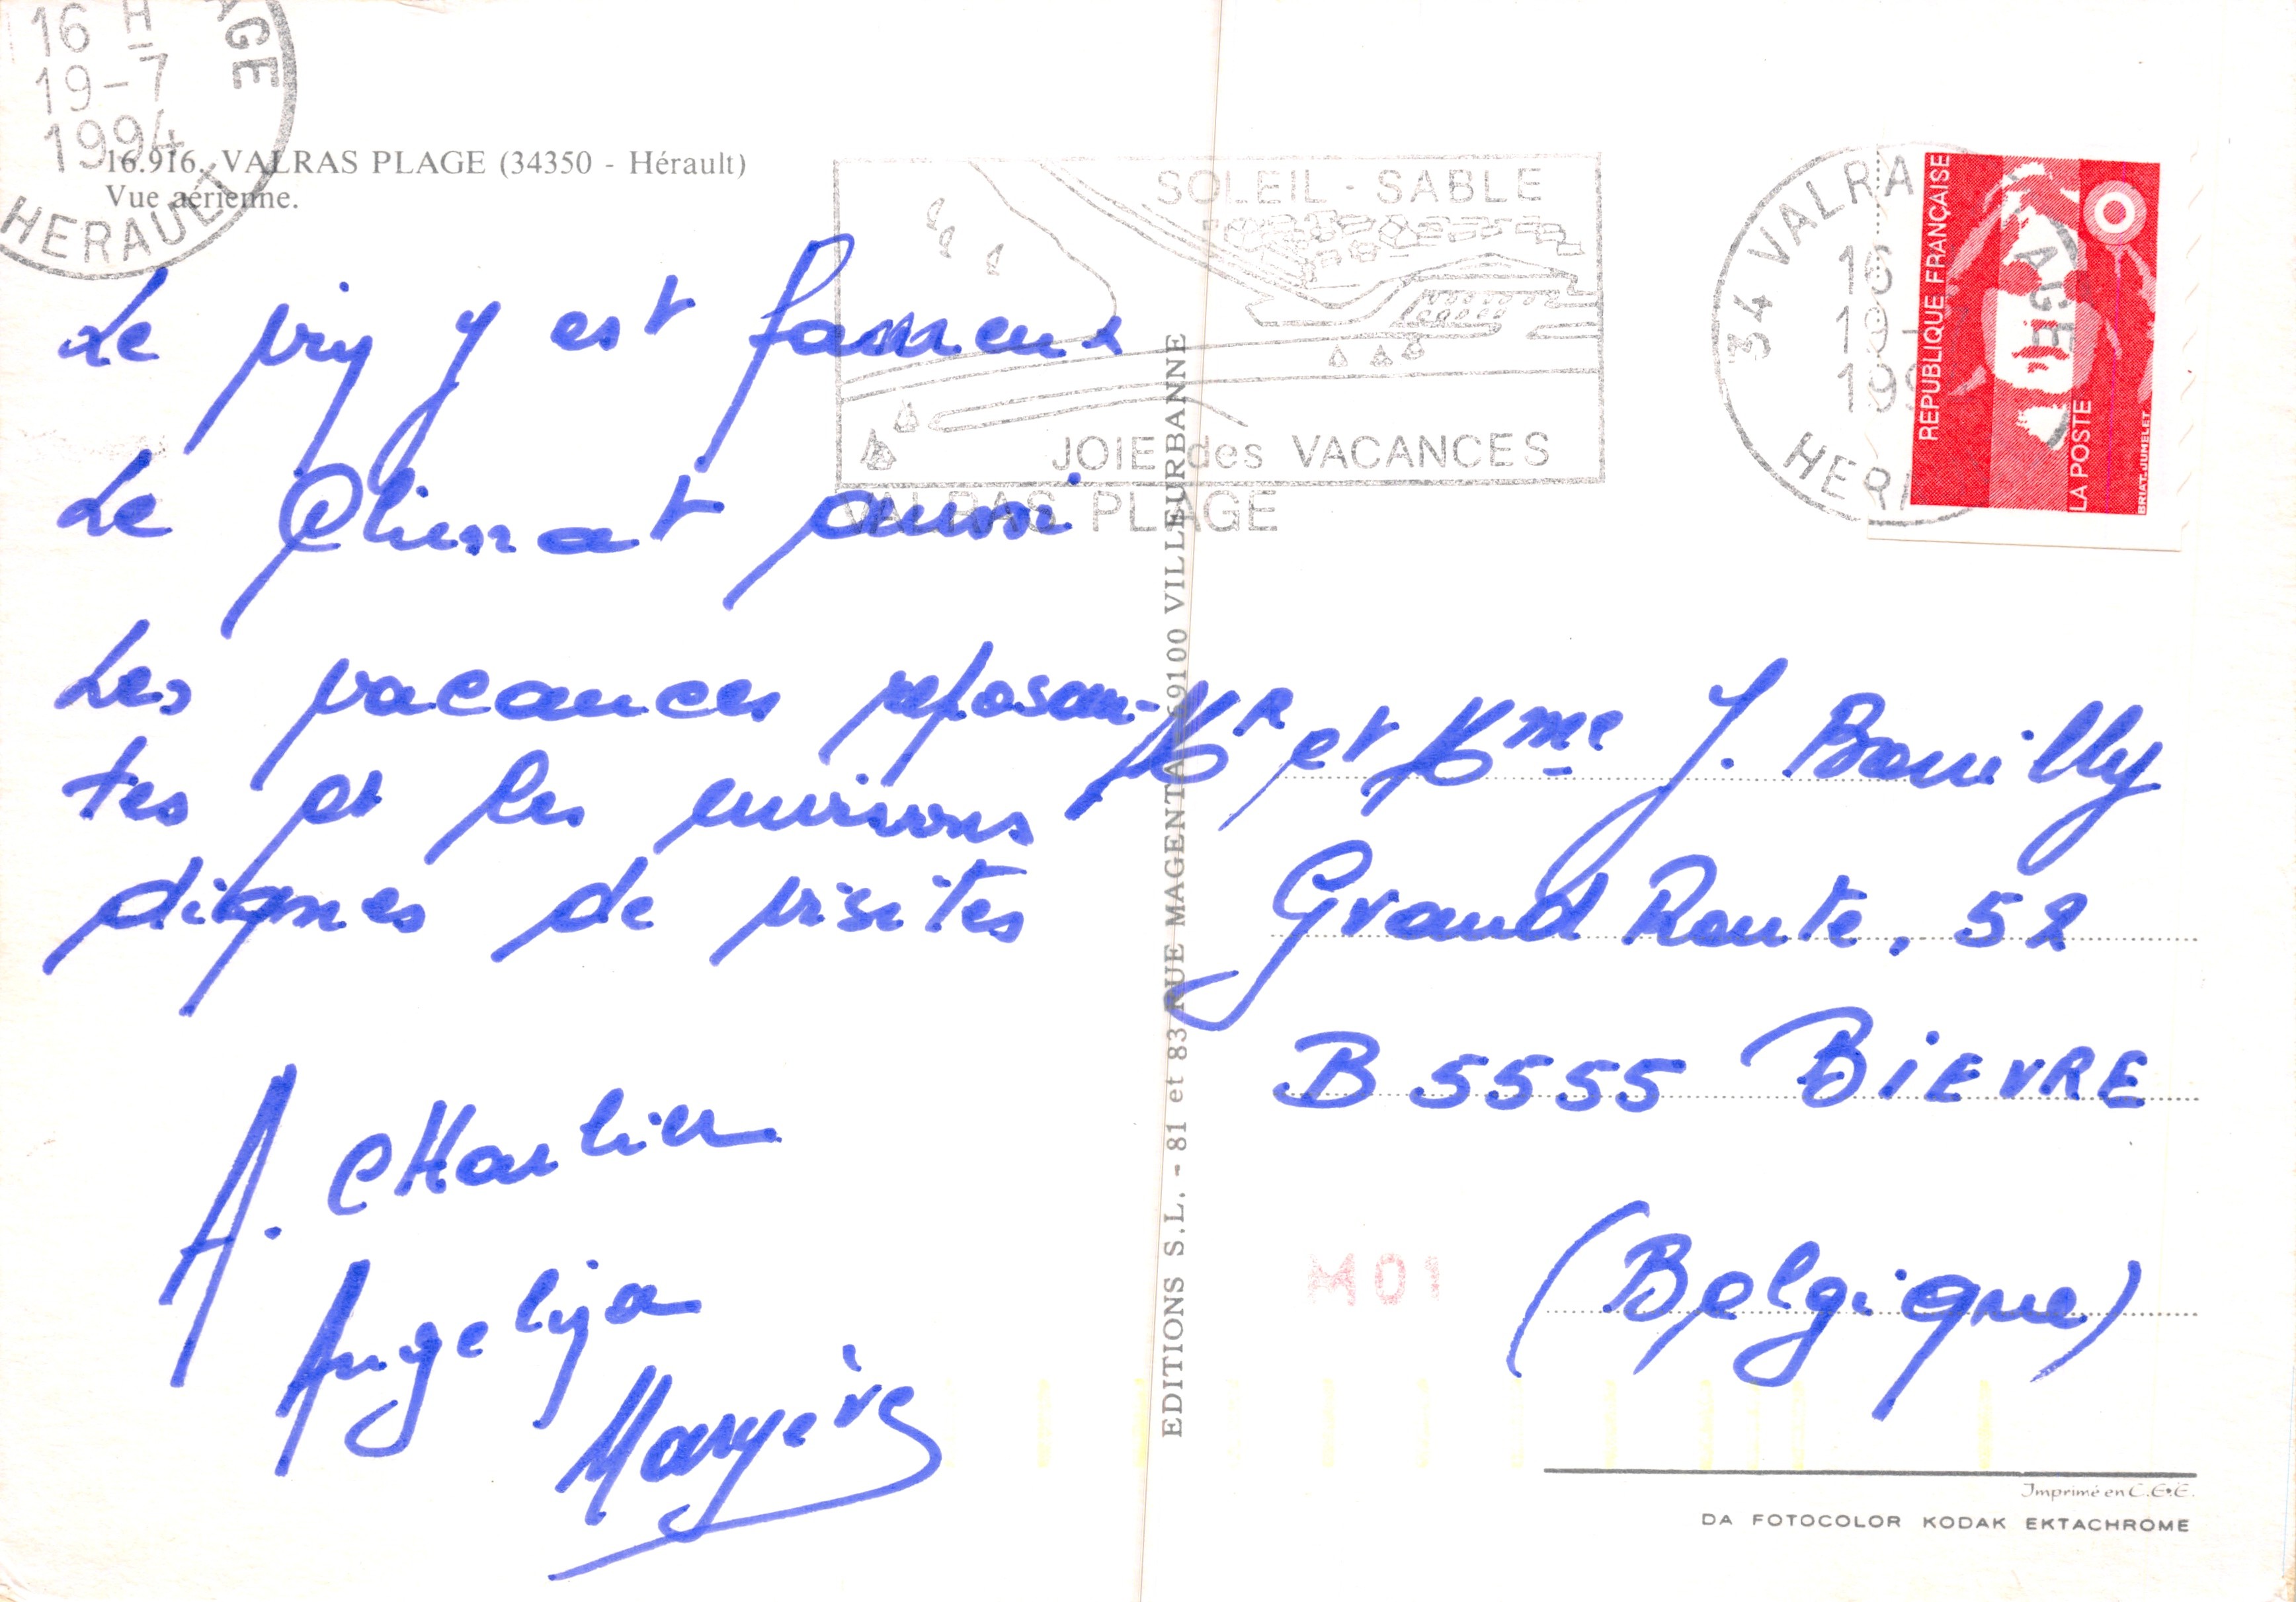 16 H
19-7
1994
AGE
HERAULT
16.916. VALRAS PLAGE (34350 - Hérault)
Vue aérienne.
SOLEIL - SABLE
JOIE des VACANCES
VALRAS PLAGE
34 VALRA
16
19-
199
HER
AGE
REPUBLIQUE FRANÇAISE
LA POSTE
BRIAT-JUMELET
Le vin y est fameux
Le Climat aussi
Les vacances reposan-
tes et les environs
dignes de visites
A. CHarlier
Angelija
EDITIONS S.L. - 81 et 83 RUE MAGENTA 69100 VILLEURBANNE
Mr et Mme J. Bouilly
Grand Route, 52
B 5555 BiEVRE
(Belgique)
M01
Imprimé en C.E.E.
DA FOTOCOLOR KODAK EKTACHROME